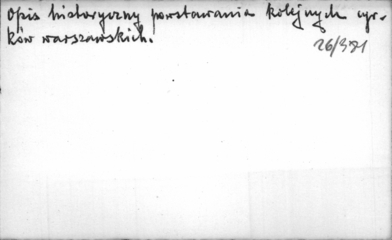 Opis historyczny powstawania kolejnych cyr-
ków warszawskich.
26/371